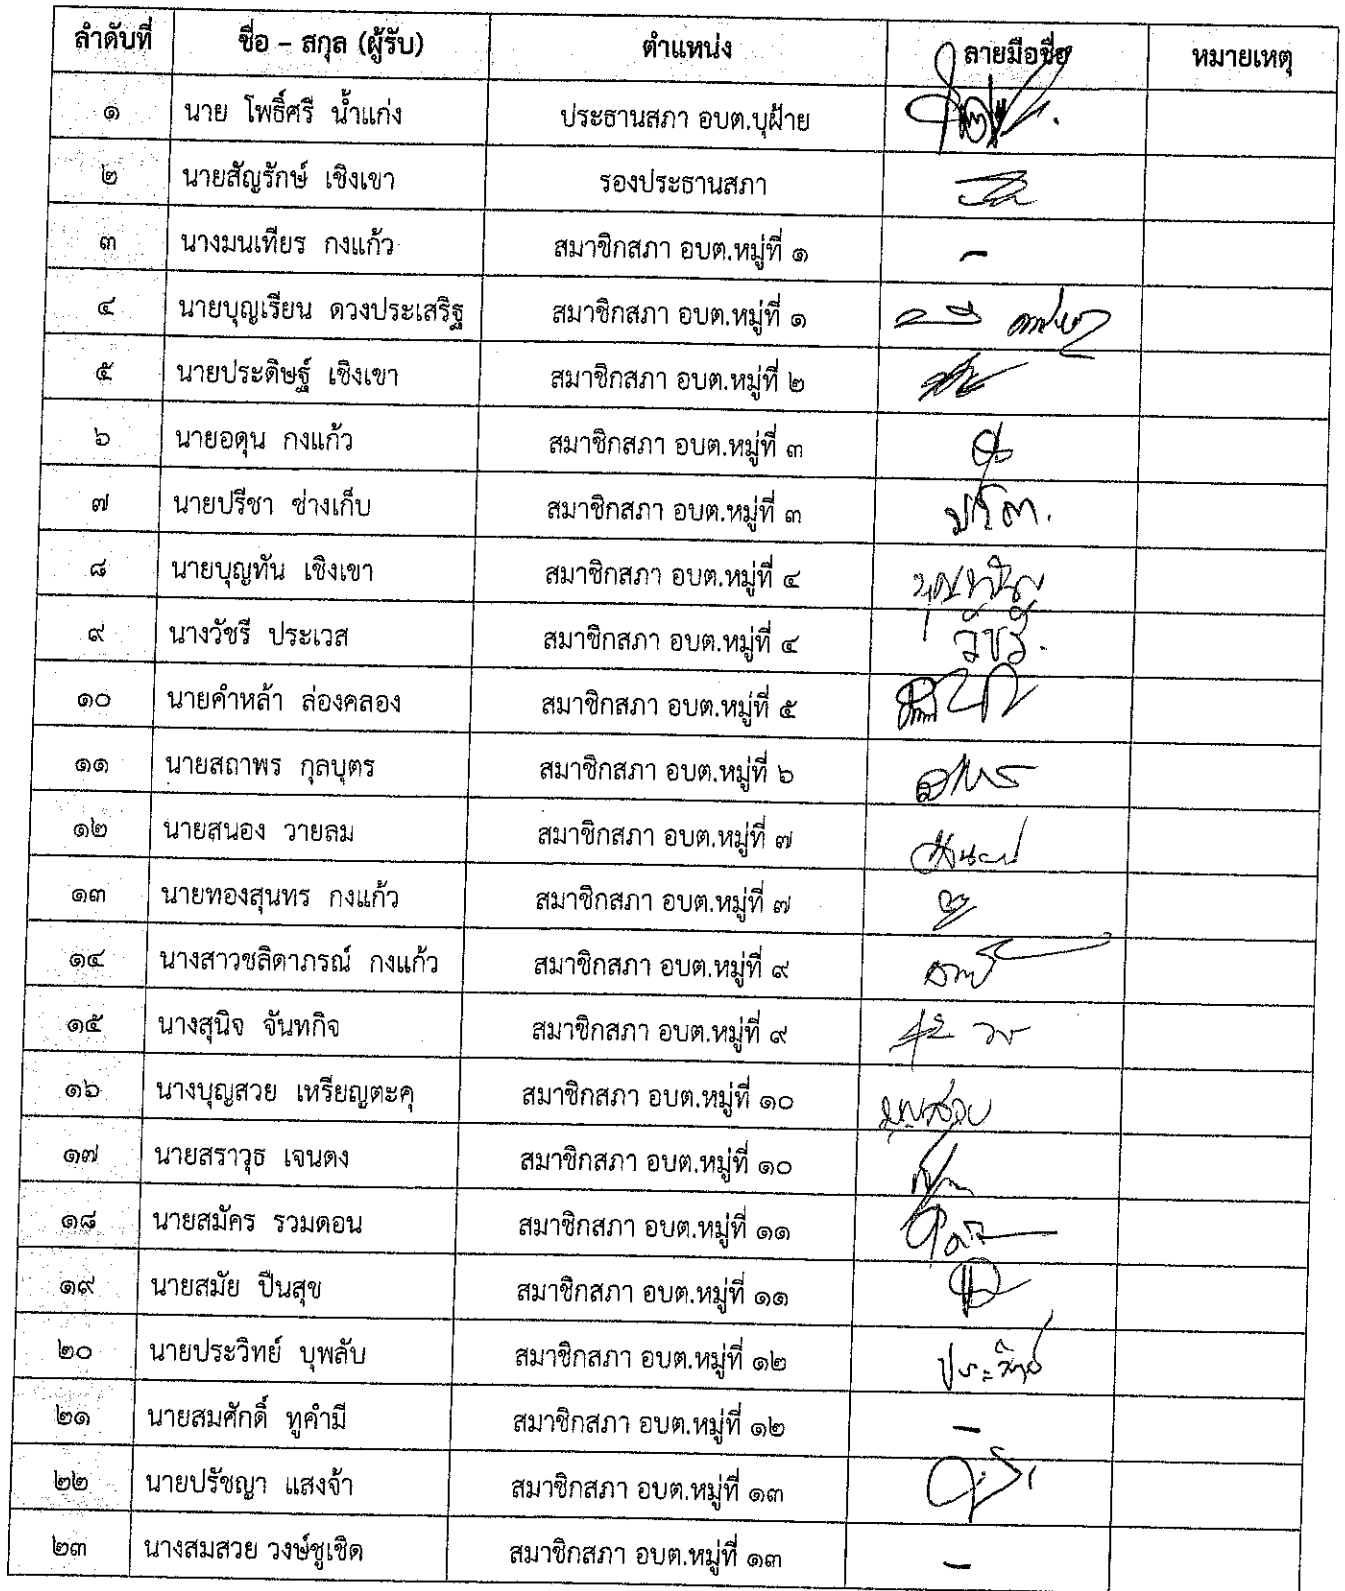 ลำดับที่ ชื่อ – สกุล (ผู้รับ) ตำแหน่ง ลายมือชื่อ หมายเหตุ
๑ นาย โพธิ์ศรี น้ำแก่ง ประธานสภา อบต.บุฝ้าย
๒ นายสัญรักษ์ เชิงเขา รองประธานสภา
๓ นางมนเทียร กงแก้ว สมาชิกสภา อบต.หมู่ที่ ๑ –
๔ นายบุญเรียน ดวงประเสริฐ สมาชิกสภา อบต.หมู่ที่ ๑
๕ นายประดิษฐ์ เชิงเขา สมาชิกสภา อบต.หมู่ที่ ๒
๖ นายอดุน กงแก้ว สมาชิกสภา อบต.หมู่ที่ ๓
๗ นายปรีชา ช่างเก็บ สมาชิกสภา อบต.หมู่ที่ ๓
๘ นายบุญทัน เชิงเขา สมาชิกสภา อบต.หมู่ที่ ๔
๙ นางวัชรี ประเวส สมาชิกสภา อบต.หมู่ที่ ๔ วัชรี.
๑๐ นายคำหล้า ล่องคลอง สมาชิกสภา อบต.หมู่ที่ ๕
๑๑ นายสถาพร กุลบุตร สมาชิกสภา อบต.หมู่ที่ ๖
๑๒ นายสนอง วายลม สมาชิกสภา อบต.หมู่ที่ ๗
๑๓ นายทองสุนทร กงแก้ว สมาชิกสภา อบต.หมู่ที่ ๗
๑๔ นางสาวชลิดาภรณ์ กงแก้ว สมาชิกสภา อบต.หมู่ที่ ๙
๑๕ นางสุนิจ จันทกิจ สมาชิกสภา อบต.หมู่ที่ ๙
๑๖ นางบุญสวย เหรียญตะคุ สมาชิกสภา อบต.หมู่ที่ ๑๐
๑๗ นายสราวุธ เจนดง สมาชิกสภา อบต.หมู่ที่ ๑๐
๑๘ นายสมัคร รวมดอน สมาชิกสภา อบต.หมู่ที่ ๑๑
๑๙ นายสมัย ปืนสุข สมาชิกสภา อบต.หมู่ที่ ๑๑
๒๐ นายประวิทย์ บุพลับ สมาชิกสภา อบต.หมู่ที่ ๑๒ ประวิทย์
๒๑ นายสมศักดิ์ ทูคำมี สมาชิกสภา อบต.หมู่ที่ ๑๒ –
๒๒ นายปรัชญา แสงจ้า สมาชิกสภา อบต.หมู่ที่ ๑๓
๒๓ นางสมสวย วงษ์ชูเชิด สมาชิกสภา อบต.หมู่ที่ ๑๓ –